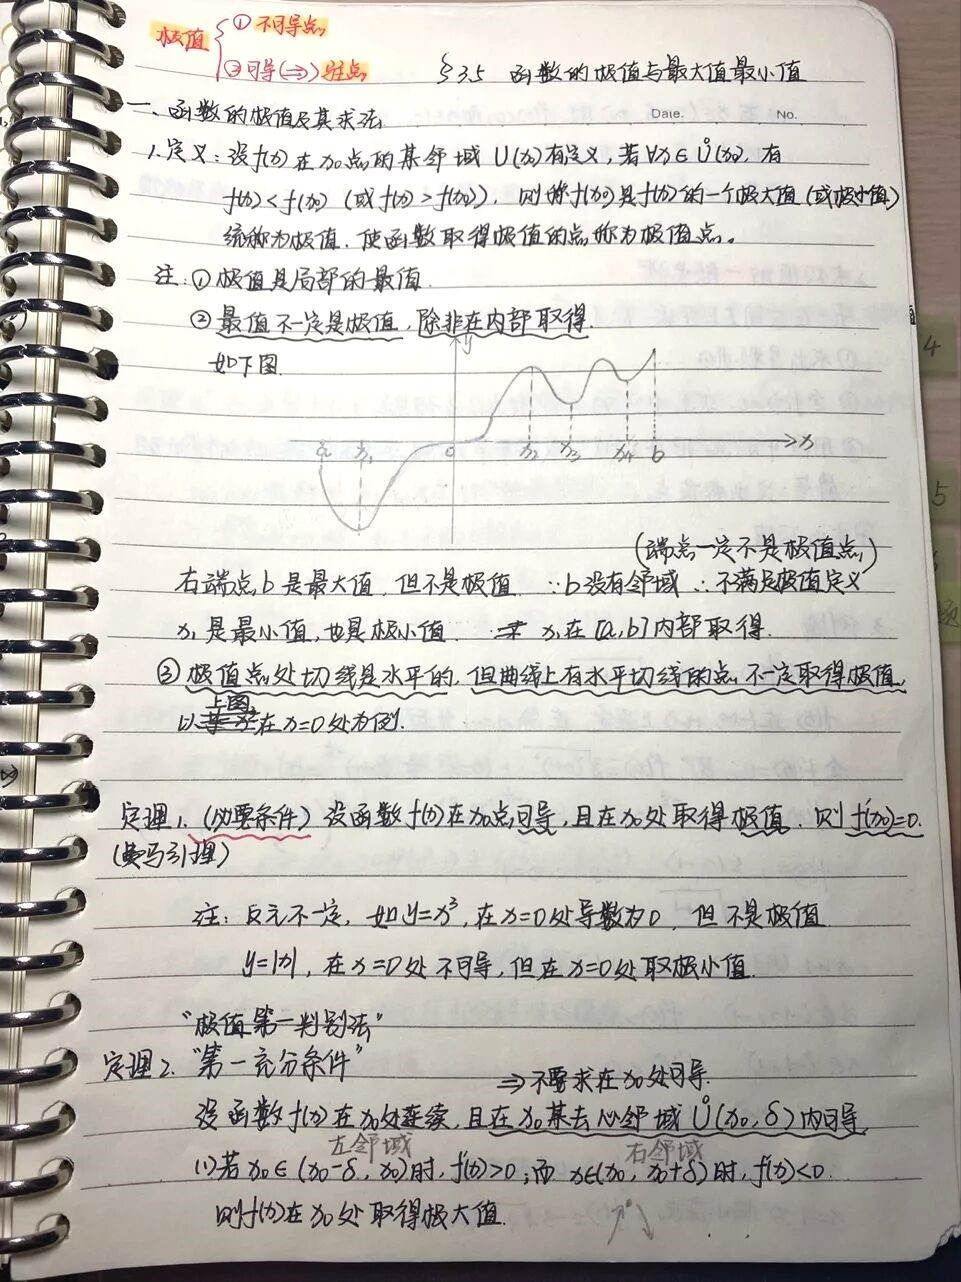 极值 ① 不可导点
② 可导(⇒) 驻点
§3.5 函数的极值与最大值最小值
Date. No.
一、函数的极值及其求法
1.定义：设f(x)在x₀点的某邻域U(x₀)有定义，若∀x∈Ů(x₀), 有
f(x)<f(x₀)（或f(x)>f(x₀)），则称f(x₀)是f(x)的一个极大值(或极小值)
统称为极值. 使函数取得极值的点称为极值点。
注：① 极值是局部的最值.
② 最值不一定是极值，除非在内部取得.
如下图.
y
a x₁ 0 x₂ x₃ x₄ b x
(端点一定不是极值点)
右端点b是最大值，但不是极值 ∵b没有邻域 ∴不满足极值定义
x₁是最小值，也是极小值. x₁在[a,b]内部取得.
③ 极值点处切线是水平的，但曲线上有水平切线的点，不一定取得极值.
以上图在x=0处为例.
定理1.(必要条件) 设函数f(x)在x₀点可导，且在x₀处取得极值. 则f'(x₀)=0.
(费马引理)
注：反之不一定，如y=x³，在x=0处导数为0，但不是极值
y=|x|，在x=0处不可导，但在x=0处取极小值.
“极值第一判别法”
定理2. “第一充分条件”
⇒不要求在x₀处可导.
设函数f(x)在x₀处连续，且在x₀某去心邻域Ů(x₀,δ)内可导
左邻域 右邻域
(1)若x₀∈(x₀-δ, x₀)时，f'(x)>0；而x∈(x₀, x₀+δ)时，f'(x)<0.
则f(x)在x₀处取得极大值.
4
5
题